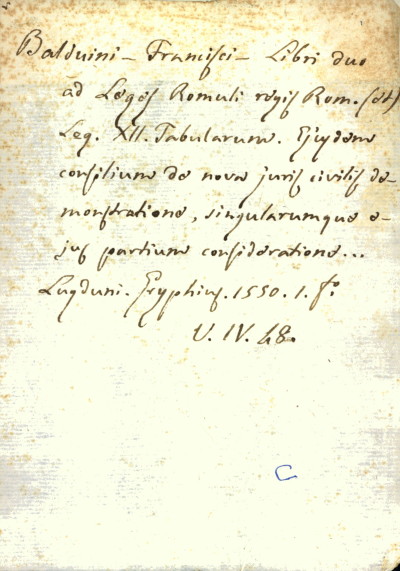 Balduini - Francisci - Libri duo
ad Leges Romuli regis Rom. (et)
Leg. XII. Tabularum. Ejusdem
consilium de nova juris civilis de-
monstratione, singularumque e-
jus partium consideratione...
Lugduni. Gryphius. 1550. 1. fo.
V. IV. 48.
C